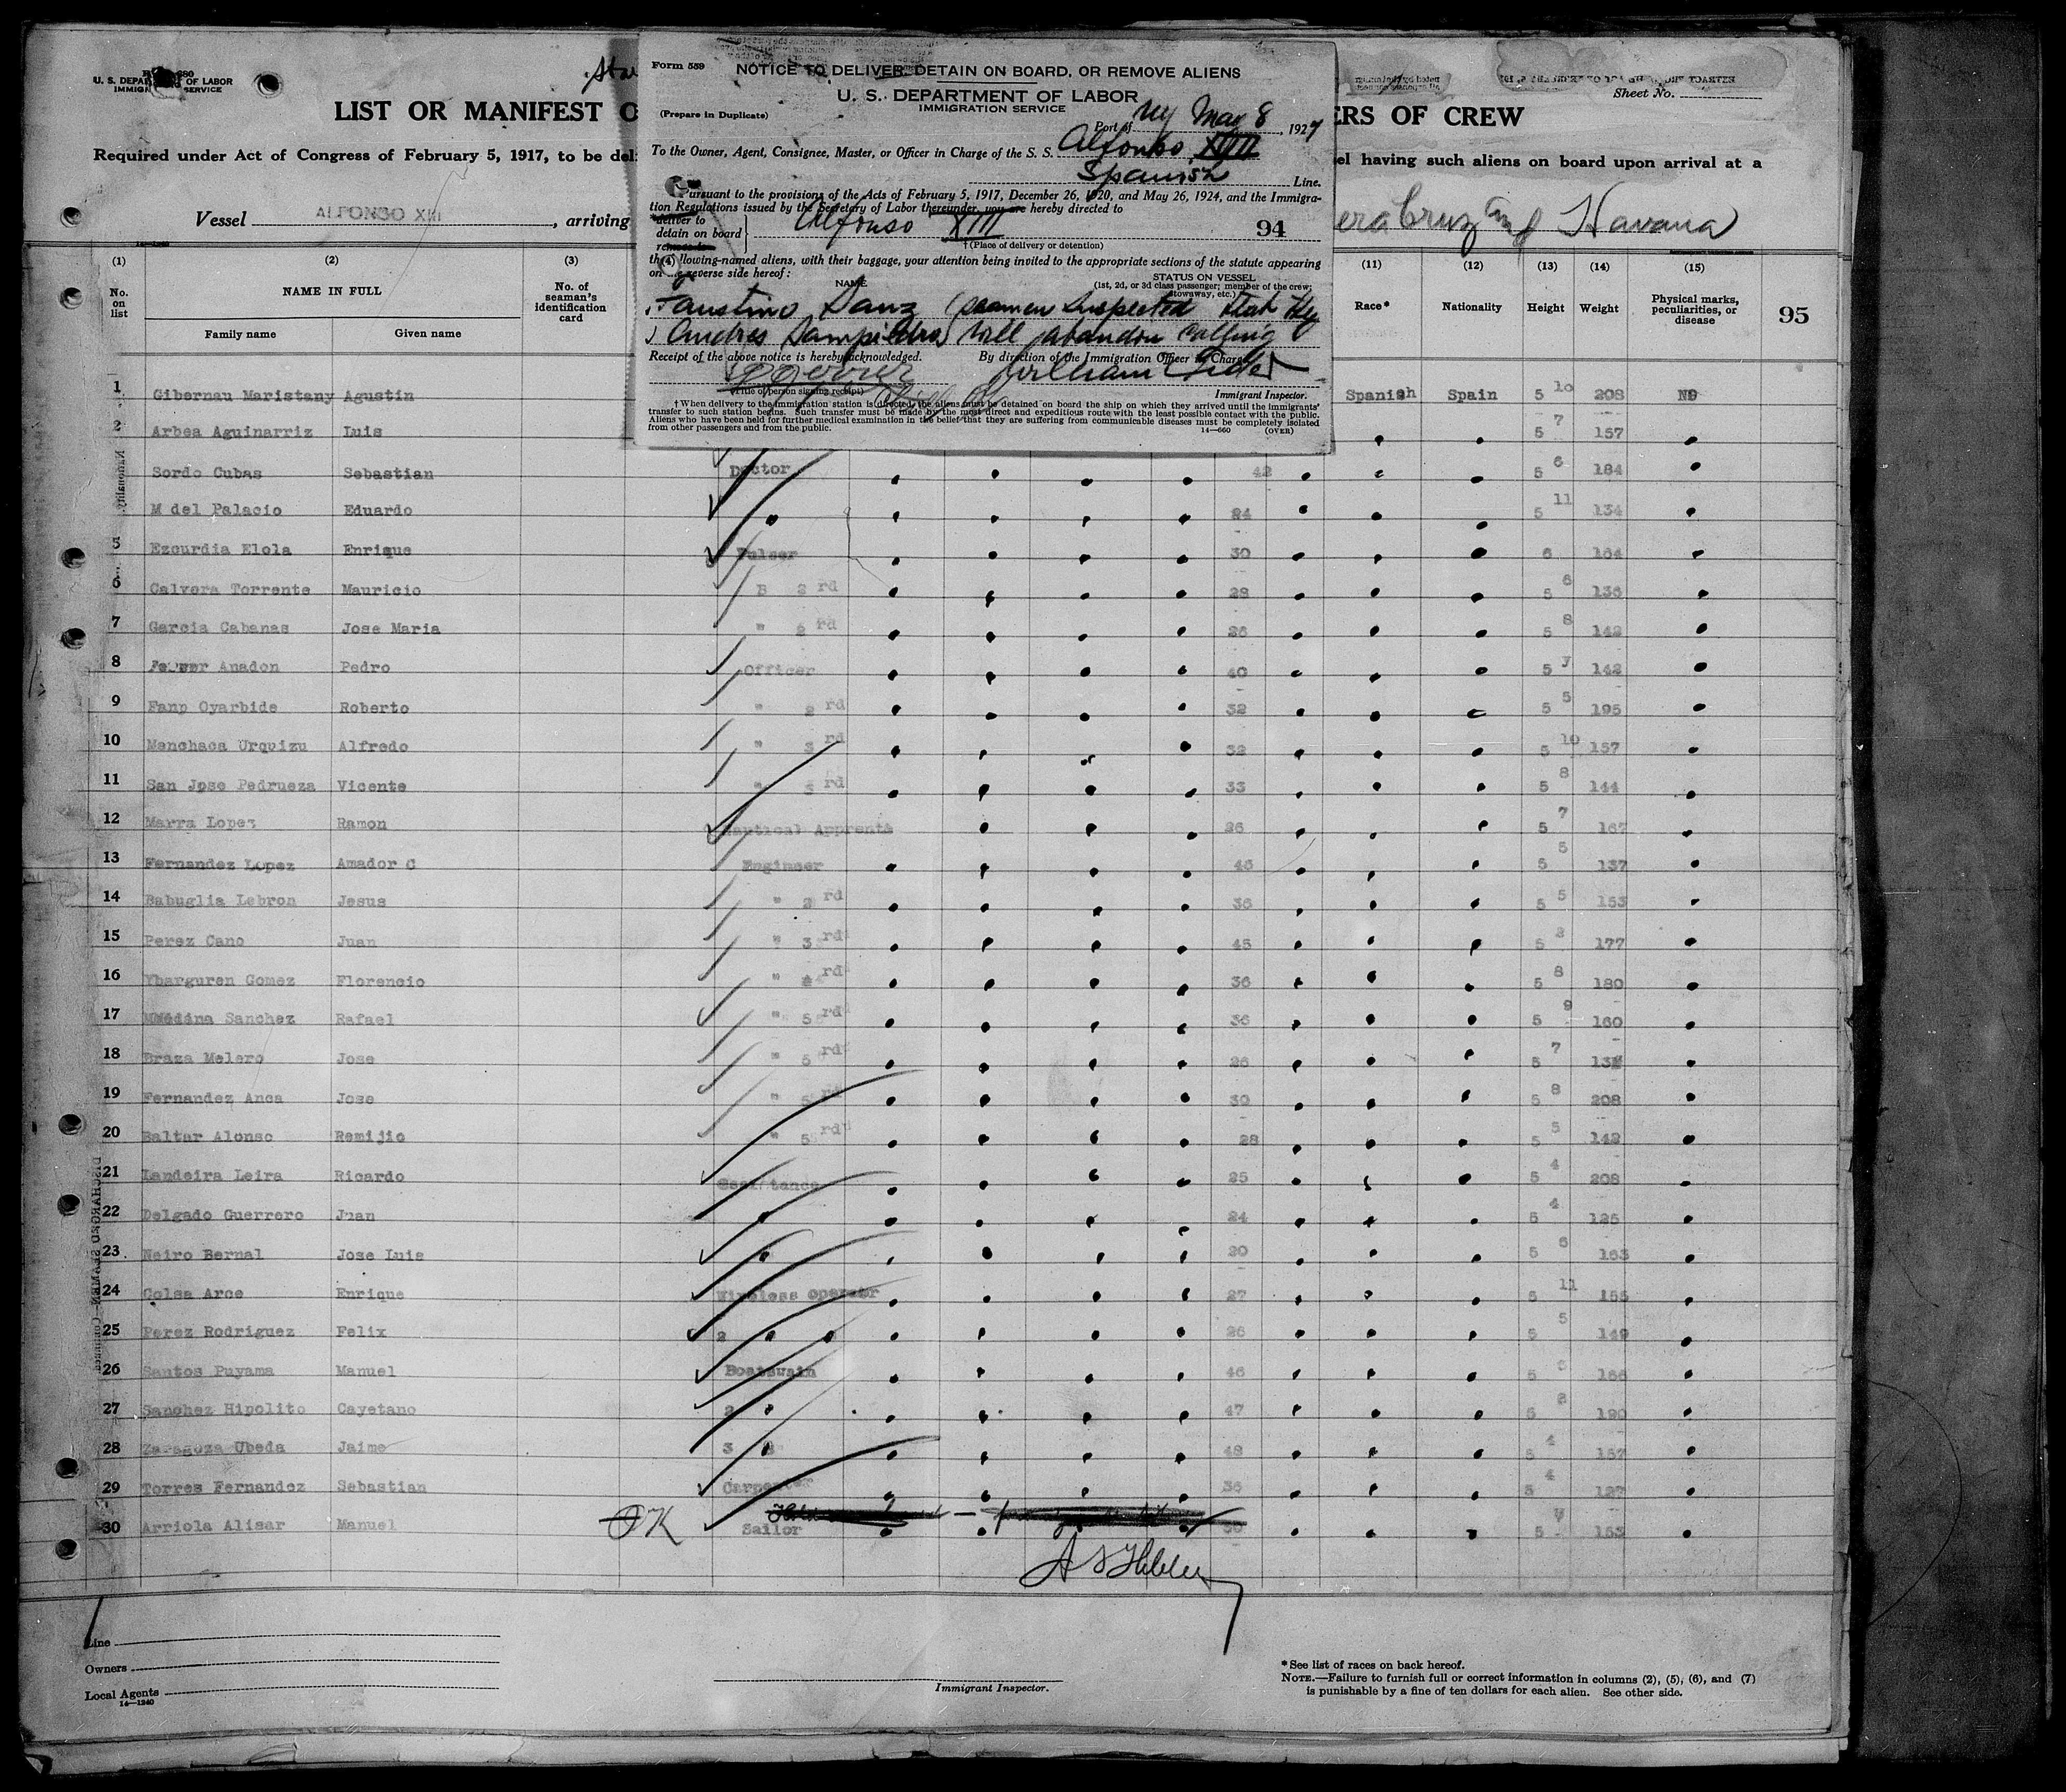 Form 680
U. S. DEPARTMENT OF LABOR
IMMIGRATION SERVICE
LIST OR MANIFEST O
ERS OF CREW
Sheet No.
Required under Act of Congress of February 5, 1917, to be deli
el having such aliens on board upon arrival at a
Vessel ALFONSO XIII, arriving
era Cruz and Havana
Form 559
NOTICE TO DELIVER, DETAIN ON BOARD, OR REMOVE ALIENS
U. S. DEPARTMENT OF LABOR
IMMIGRATION SERVICE
(Prepare in Duplicate)
Port of NY May 8, 1927
To the Owner, Agent, Consignee, Master, or Officer in Charge of the S. S. Alfonso XIII
Spanish Line.
Pursuant to the provisions of the Acts of February 5, 1917, December 26, 1920, and May 26, 1924, and the Immigra-
tion Regulations issued by the Secretary of Labor thereunder, you are hereby directed to
deliver to
detain on board Alfonso XIII 94
remove to
†(Place of delivery or detention)
the following-named aliens, with their baggage, your attention being invited to the appropriate sections of the statute appearing
on the reverse side hereof:
NAME
STATUS ON VESSEL
(1st, 2d, or 3d class passenger; member of the crew;
stowaway, etc.)
Faustino Sanz (seamen Inspected
Andres Sampiedro) will abandon calling
Receipt of the above notice is hereby acknowledged. By direction of the Immigration Officer in Charge
William
(Title of person signing receipt)
Immigrant Inspector.
†When delivery to the immigration station is directed, the aliens must be detained on board the ship on which they arrived until the immigrants'
transfer to such station begins. Such transfer must be made by the most direct and expeditious route with the least possible contact with the public.
Aliens who have been held for further medical examination in the belief that they are suffering from communicable diseases must be completely isolated
from other passengers and from the public. 14—660 (OVER)
(1) (2) (3) (11) (12) (13) (14) (15)
No. on list
NAME IN FULL
Family name Given name
No. of seaman's identification card
Race* Nationality Height Weight Physical marks, peculiarities, or disease
95
1 Gibernau Maristany Agustin Spanish Spain 5 10 208 NO
2 Arbea Aguinarriz Luis 5 7 157
Sordo Cubas Sebastian Doctor 42 5 6 184
M del Palacio Eduardo " 24 5 11 134
5 Ezcurdia Elola Enrique Pulser 30 6 164
6 Calvera Torrente Mauricio B 2 rd 28 5 6 136
7 Garcia Cabanas Jose Maria " 2 rd 26 5 8 142
8 Ferrer Anadon Pedro Officer 40 5 7 142
9 Fanp Oyarbide Roberto " 2 rd 32 5 5 195
10 Menchaca Urquizu Alfredo " 3 rd 32 5 10 157
11 San Jose Pedrueza Vicente " 3 rd 33 5 8 144
12 Marra Lopez Ramon Nautical Apprenta 26 5 7 167
13 Fernandez Lopez Amador C Engineer 46 5 5 137
14 Babuglia Lebron Jesus " 2 rd 36 5 5 153
15 Perez Cano Juan " 3 rd 45 5 2 177
16 Ybarguren Gomez Florencio " 4 rd 36 5 8 180
17 Medina Sanchez Rafael " 5 rd 36 5 9 160
18 Braza Melero Jose " 5 rd 26 5 7
19 Fernandez Anca Jose " 5 rd 30 5 8 208
20 Baltar Alonso Remijio " 5 rd 28 5 5 142
21 Landeira Leira Ricardo 25 5 4 208
22 Delgado Guerrero Juan " 24 5 4 125
23 Neiro Bernal Jose Luis " 20 5 6 163
24 Colsa Arce Enrique Wireless operator 27 5 11 155
25 Perez Rodriguez Felix 2 " " 26 5 5 149
26 Santos Puyama Manuel Boatswain 46 5 6 166
27 Sanchez Hipolito Cayetano 2 " 47 5 8 190
28 Zaragoza Ubeda Jaime 3 " 48 5 4 157
29 Torres Fernandez Sebastian Carpenter 36 5 4 127
30 Arriola Alisar Manuel OK Sailor 30 5 153
Line
Owners
Local Agents
14—1240
Immigrant Inspector.
*See list of races on back hereof.
NOTE.—Failure to furnish full or correct information in columns (2), (5), (6), and (7)
is punishable by a fine of ten dollars for each alien. See other side.